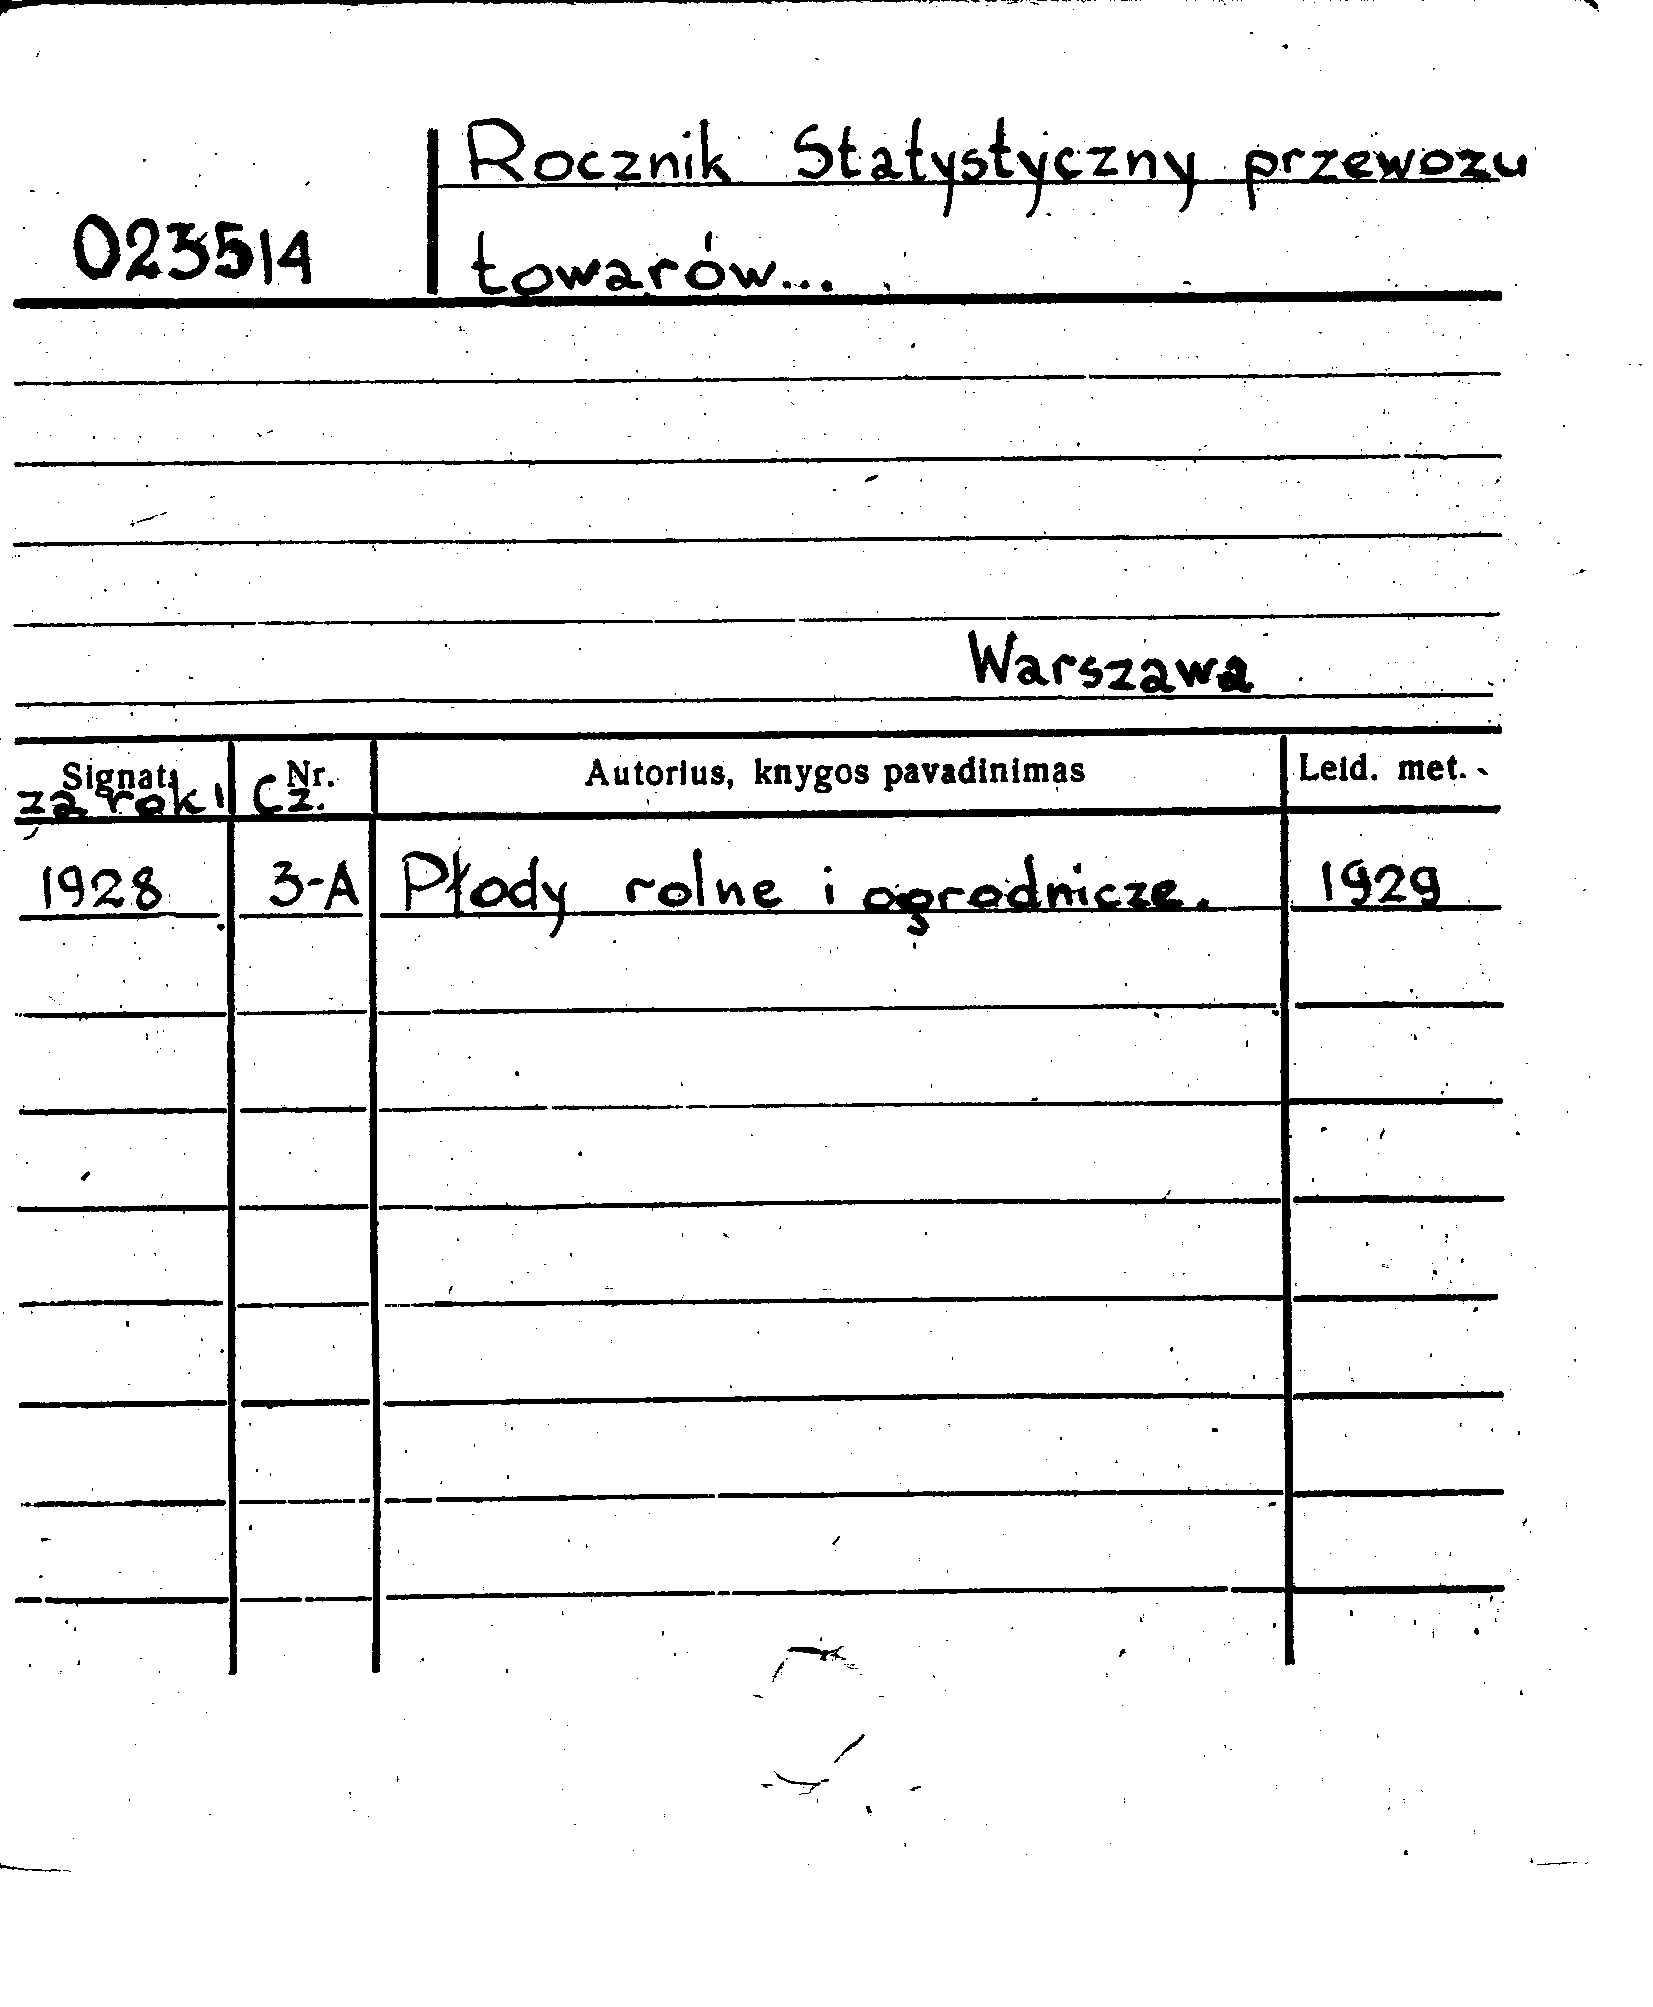 Rocznik Statystyczny przewozu
023514 towarów...
Warszawa
Signat. Nr. Autorius, knygos pavadinimas Leid. met.
za rok Cz.
1928 3-A Płody rolne i ogrodnicze. 1929